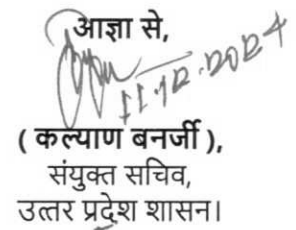 आज्ञा से,
11.12.2024
( कल्याण बनर्जी ),
संयुक्त सचिव,
उत्तर प्रदेश शासन।